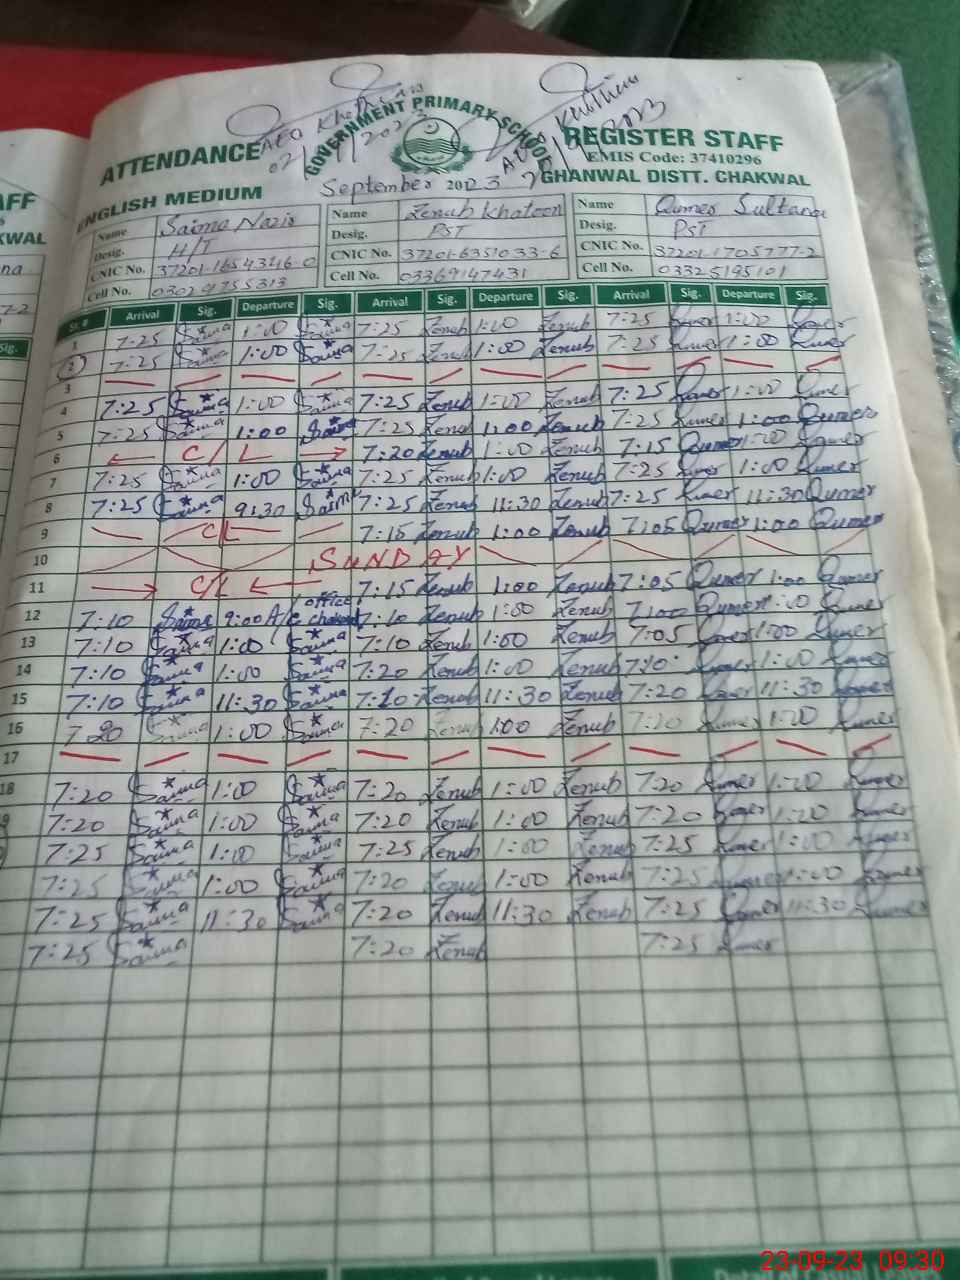 AEO Khothian
AEO Khothian
02/9/2023
GOVERNMENT PRIMARY SCHOOL
ATTENDANCE
REGISTER STAFF
EMIS Code: 37410296
ENGLISH MEDIUM
September 2023
GHANWAL DISTT. CHAKWAL
Name Saima Nazir Name Zenub Khatoon Name Qumer Sultana
Desig. H/T Desig. PST Desig. PST
CNIC No. 37201-1654346-0 CNIC No. 37201-6351033-6 CNIC No. 37201-1705777-2
Cell No. 03029755313 Cell No. 03369147431 Cell No. 03325195101
Sr. # Arrival Sig. Departure Sig. Arrival Sig. Departure Sig. Arrival Sig. Departure Sig.
1 7:25 Saima 1:00 Saima 7:25 Zenub 1:00 Zenub 7:25 Qumer 1:00 Qumer
2 7:25 Saima 1:00 Saima 7:25 Zenub 1:00 Zenub 7:25 Qumer 1:00 Qumer
3
4 7:25 Saima 1:00 Saima 7:25 Zenub 1:00 Zenub 7:25 Qumer 1:00 Qumer
5 7:25 Saima 1:00 Saima 7:25 Zenub 1:00 Zenub 7:25 Qumer 1:00 Qumer
6 C/L 7:20 Zenub 1:00 Zenub 7:15 Qumer 1:00 Qumer
7 7:25 Saima 1:00 Saima 7:25 Zenub 1:00 Zenub 7:25 Qumer 1:00 Qumer
8 7:25 Saima 9:30 Saima 7:25 Zenub 11:30 Zenub 7:25 Qumer 11:30 Qumer
9 C/L 7:15 Zenub 1:00 Zenub 7:05 Qumer 1:00 Qumer
10 SUNDAY
11 C/L 7:15 Zenub 1:00 Zenub 7:05 Qumer 1:00 Qumer
12 7:10 Saima 9:00 A/E office 7:10 Zenub 1:00 Zenub 7:00 Qumer 1:00 Qumer
13 7:10 Saima 1:00 Saima 7:10 Zenub 1:00 Zenub 7:05 Qumer 1:00 Qumer
14 7:10 Saima 1:00 Saima 7:20 Zenub 1:00 Zenub 7:10 Qumer 1:00 Qumer
15 7:10 Saima 11:30 Saima 7:20 Zenub 11:30 Zenub 7:20 Qumer 11:30 Qumer
16 7:20 Saima 1:00 Saima 7:20 Zenub 1:00 Zenub 7:20 Qumer 1:00 Qumer
17
18 7:20 Saima 1:00 Saima 7:20 Zenub 1:00 Zenub 7:20 Qumer 1:00 Qumer
7:20 Saima 1:00 Saima 7:20 Zenub 1:00 Zenub 7:20 Qumer 1:00 Qumer
7:25 Saima 1:00 Saima 7:25 Zenub 1:00 Zenub 7:25 Qumer 1:00 Qumer
7:25 Saima 1:00 Saima 7:20 Zenub 1:00 Zenub 7:25 Qumer 1:00 Qumer
7:25 Saima 11:30 Saima 7:20 Zenub 11:30 Zenub 7:25 Qumer 11:30 Qumer
7:25 Saima 7:20 Zenub 7:25 Qumer
23-09-23 09:30